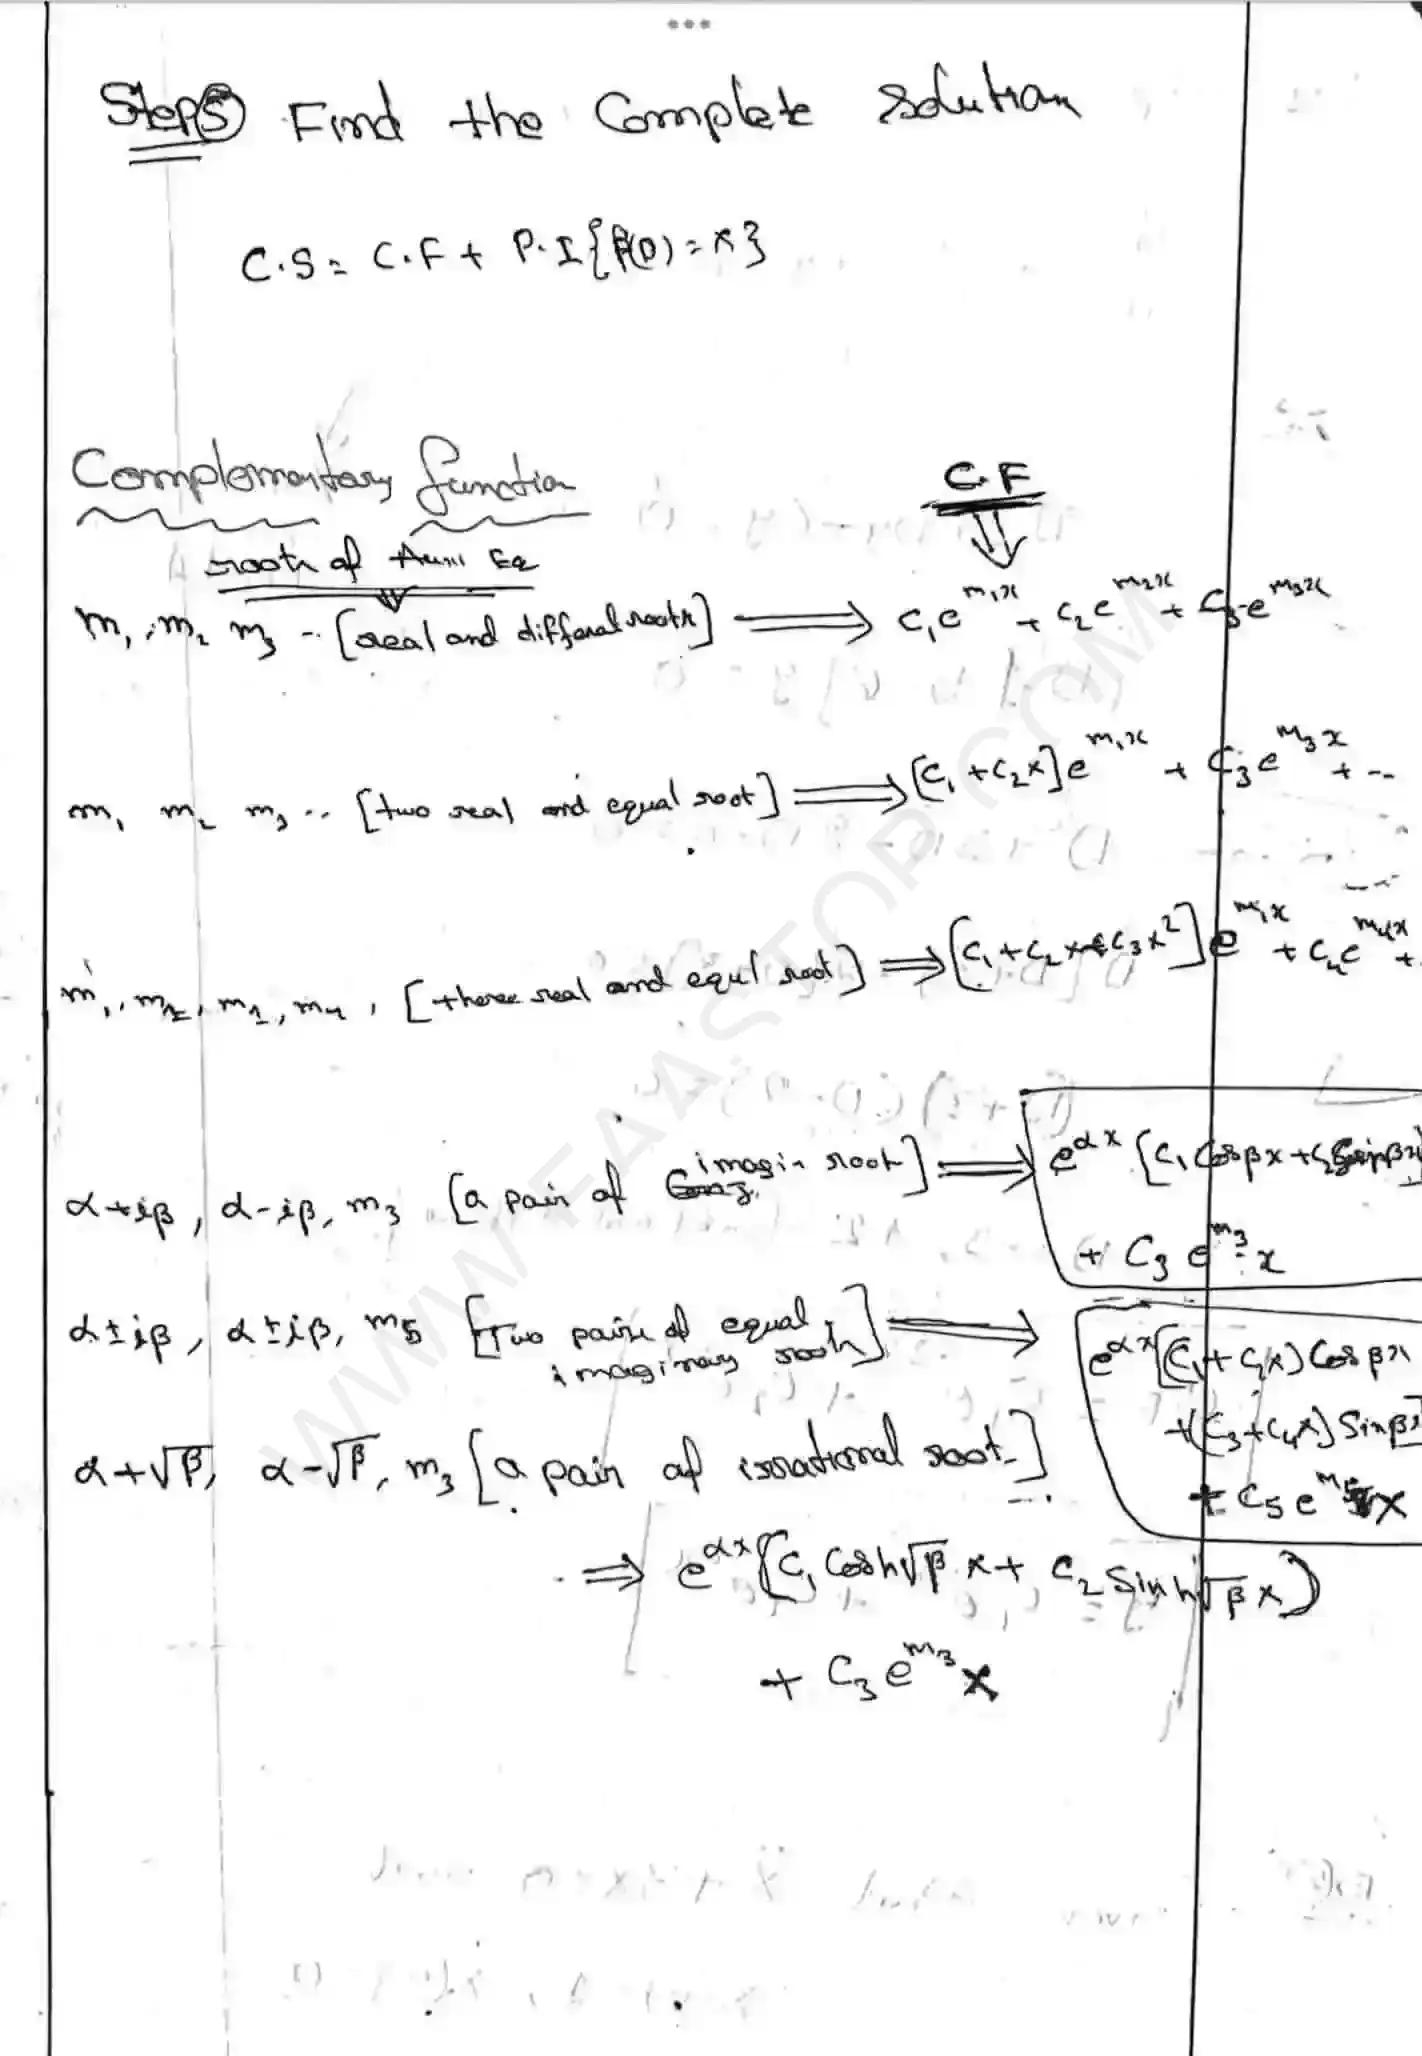 Step⑤ Find the Complete Solution
C.S = C.F + P.I {f(D) = x}
Complementary function
C.F
root of Auxi Eq
m₁, m₂ m₃ -- [real and different roots] ⟹ c₁e^{m₁x} + c₂e^{m₂x} + C₃e^{m₃x}
m₁ m₂ m₃ -- [two real and equal root] ⟹ [c₁ + c₂x]e^{m₁x} + C₃e^{m₃x} + --
m₁, m₂, m₃, m₄, [three real and equl root] ⟹ [c₁ + c₂x + c₃x²] e^{m₁x} + C₄e^{m₄x} +
α+iβ, α-iβ, m₃ [a pair of imagin root] ⟹ e^{αx} [c₁ Cosβx + c₂ Sinβx]
+ C₃ e^{m₃x}
α±iβ, α±iβ, m₅ [Two pair of equal imaginary root] ⟹ e^{αx}[(C₁ + c₂x) Cosβx
+(C₃+C₄x) Sinβx]
+ C₅ e^{m₅x}
α+√β, α-√β, m₃ [a pair of irrational root]
⟹ e^{αx} [C₁ Cosh√β x + C₂ Sinh√β x)
+ C₃ e^{m₃x}
WWW.FAASTOP.COM